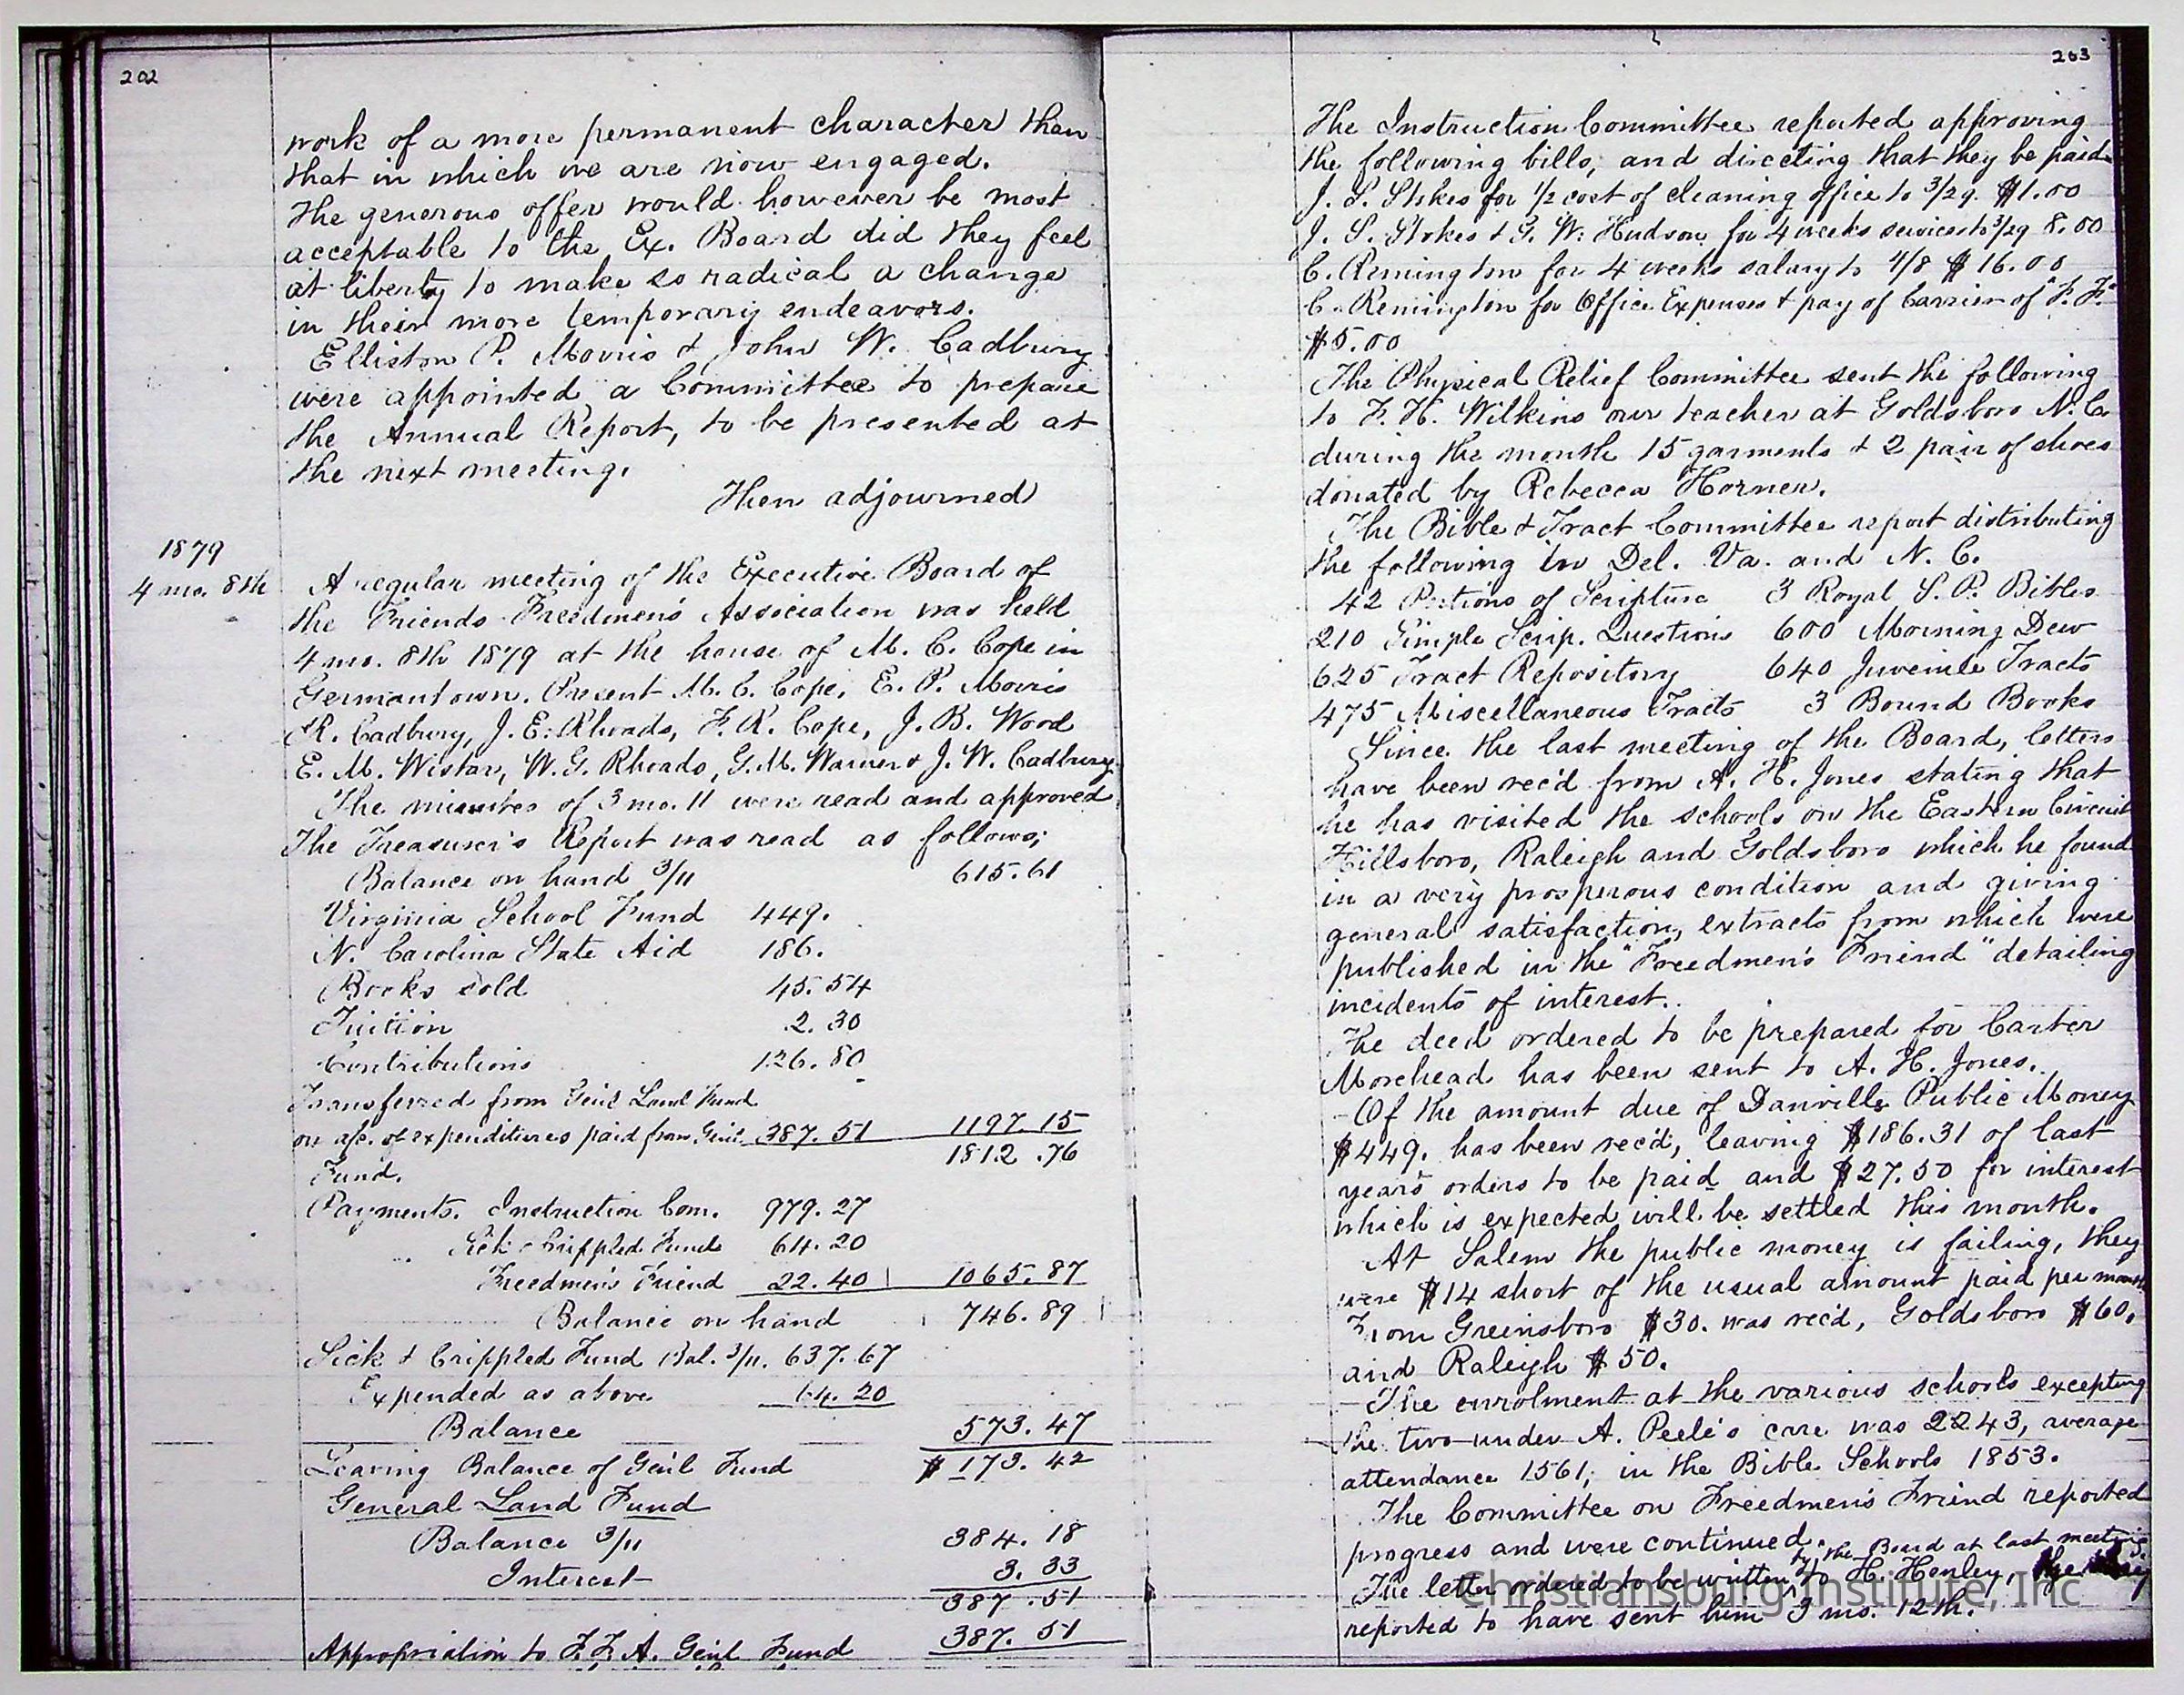 202
work of a more permanent character than
that in which we are now engaged.
The generous offer would however be most
acceptable to the Ex. Board did they feel
at liberty to make so radical a change
in their more temporary endeavors.
Elliston P. Morris & John W. Cadbury
were appointed a Committee to prepare
the Annual Report, to be presented at
the next meeting.
Then adjourned
1879
4 mo. 8th
A regular meeting of the Executive Board of
the Friends Freedmen's Association was held
4 mo. 8th 1879 at the house of M. C. Cope in
Germantown. Present M. C. Cope, E. P. Morris
R. Cadbury, J. E. Rhoads, F. R. Cope, J. B. Wood
E. M. Wistar, W. G. Rhoads, G. M. Warner & J. W. Cadbury.
The minutes of 3 mo. 11 were read and approved
The Treasurer's Report was read as follows;
Balance on hand 3/11 615.61
Virginia School Fund 449.
N. Carolina State Aid 186.
Books sold 45.54
Tuition 2.30
Contributions 126.80
Transferred from Gen'l Land Fund
on a/c. of expenditures paid from Gen'l 387.51 1197 15
1812.76
Fund.
Payments. Instruction Com. 979.27
Sick & Crippled Funds 64.20
Freedmen's Friend 22.40 1065.87
Balance on hand 746.89
Sick & Crippled Fund Bal. 3/11. 637.67
Expended as above 64.20
Balance 573.47
Leaving Balance of Gen'l Fund $173.42
General Land Fund
Balance 3/11 384.18
Interest 3.33
387.51
Appropriation to F. F. A. Gen'l Fund 387.51
203
The Instruction Committee reported approving
the following bills, and directing that they be paid
J. S. Stokes for 1/2 cost of cleaning office to 3/29. $1.00
J. S. Stokes & G. W. Hudson for 4 weeks services to 3/29 8.00
C. Remington for 4 weeks salary to 4/8 $16.00
C. Remington for Office Expenses & pay of Carrier of "F. F."
$5.00
The Physical Relief Committee sent the following
to F. H. Wilkins our teacher at Goldsboro N. C.
during the month 15 garments & 2 pair of shoes
donated by Rebecca Horner.
The Bible & Tract Committee report distributing
the following in Del. Va. and N. C.
42 Portions of Scripture 3 Royal S. P. Bibles
210 Simple Scrip. Questions 600 Morning Dew
625 Tract Repository 640 Juvenile Tracts
475 Miscellaneous Tracts 3 Bound Books
Since the last meeting of the Board, letters
have been rec'd from A. H. Jones stating that
he has visited the schools on the Eastern Circuit
Hillsboro, Raleigh and Goldsboro which he found
in a very prosperous condition and giving
general satisfaction, extracts from which were
published in the "Freedmen's Friend" detailing
incidents of interest.
The deed ordered to be prepared for Carter
Morehead has been sent to A. H. Jones.
Of the amount due of Danville Public Money
$449. has been rec'd, leaving $186.31 of last
years orders to be paid and $27.50 for interest
which is expected will be settled this month.
At Salem the public money is failing, they
were $14 short of the usual amount paid per month
From Greensboro $30. was rec'd, Goldsboro $60.
and Raleigh $50.
The enrolment at the various schools excepting
the two under A. Peele's care was 2243, average
attendance 1561, in the Bible Schools 1853.
The Committee on Freedmen's Friend reported
progress and were continued.
by the Board at last meeting
The letter ordered to be written to H. Henley,
reported to have sent him 3 mo. 12th.
Christiansburg Institute, Inc